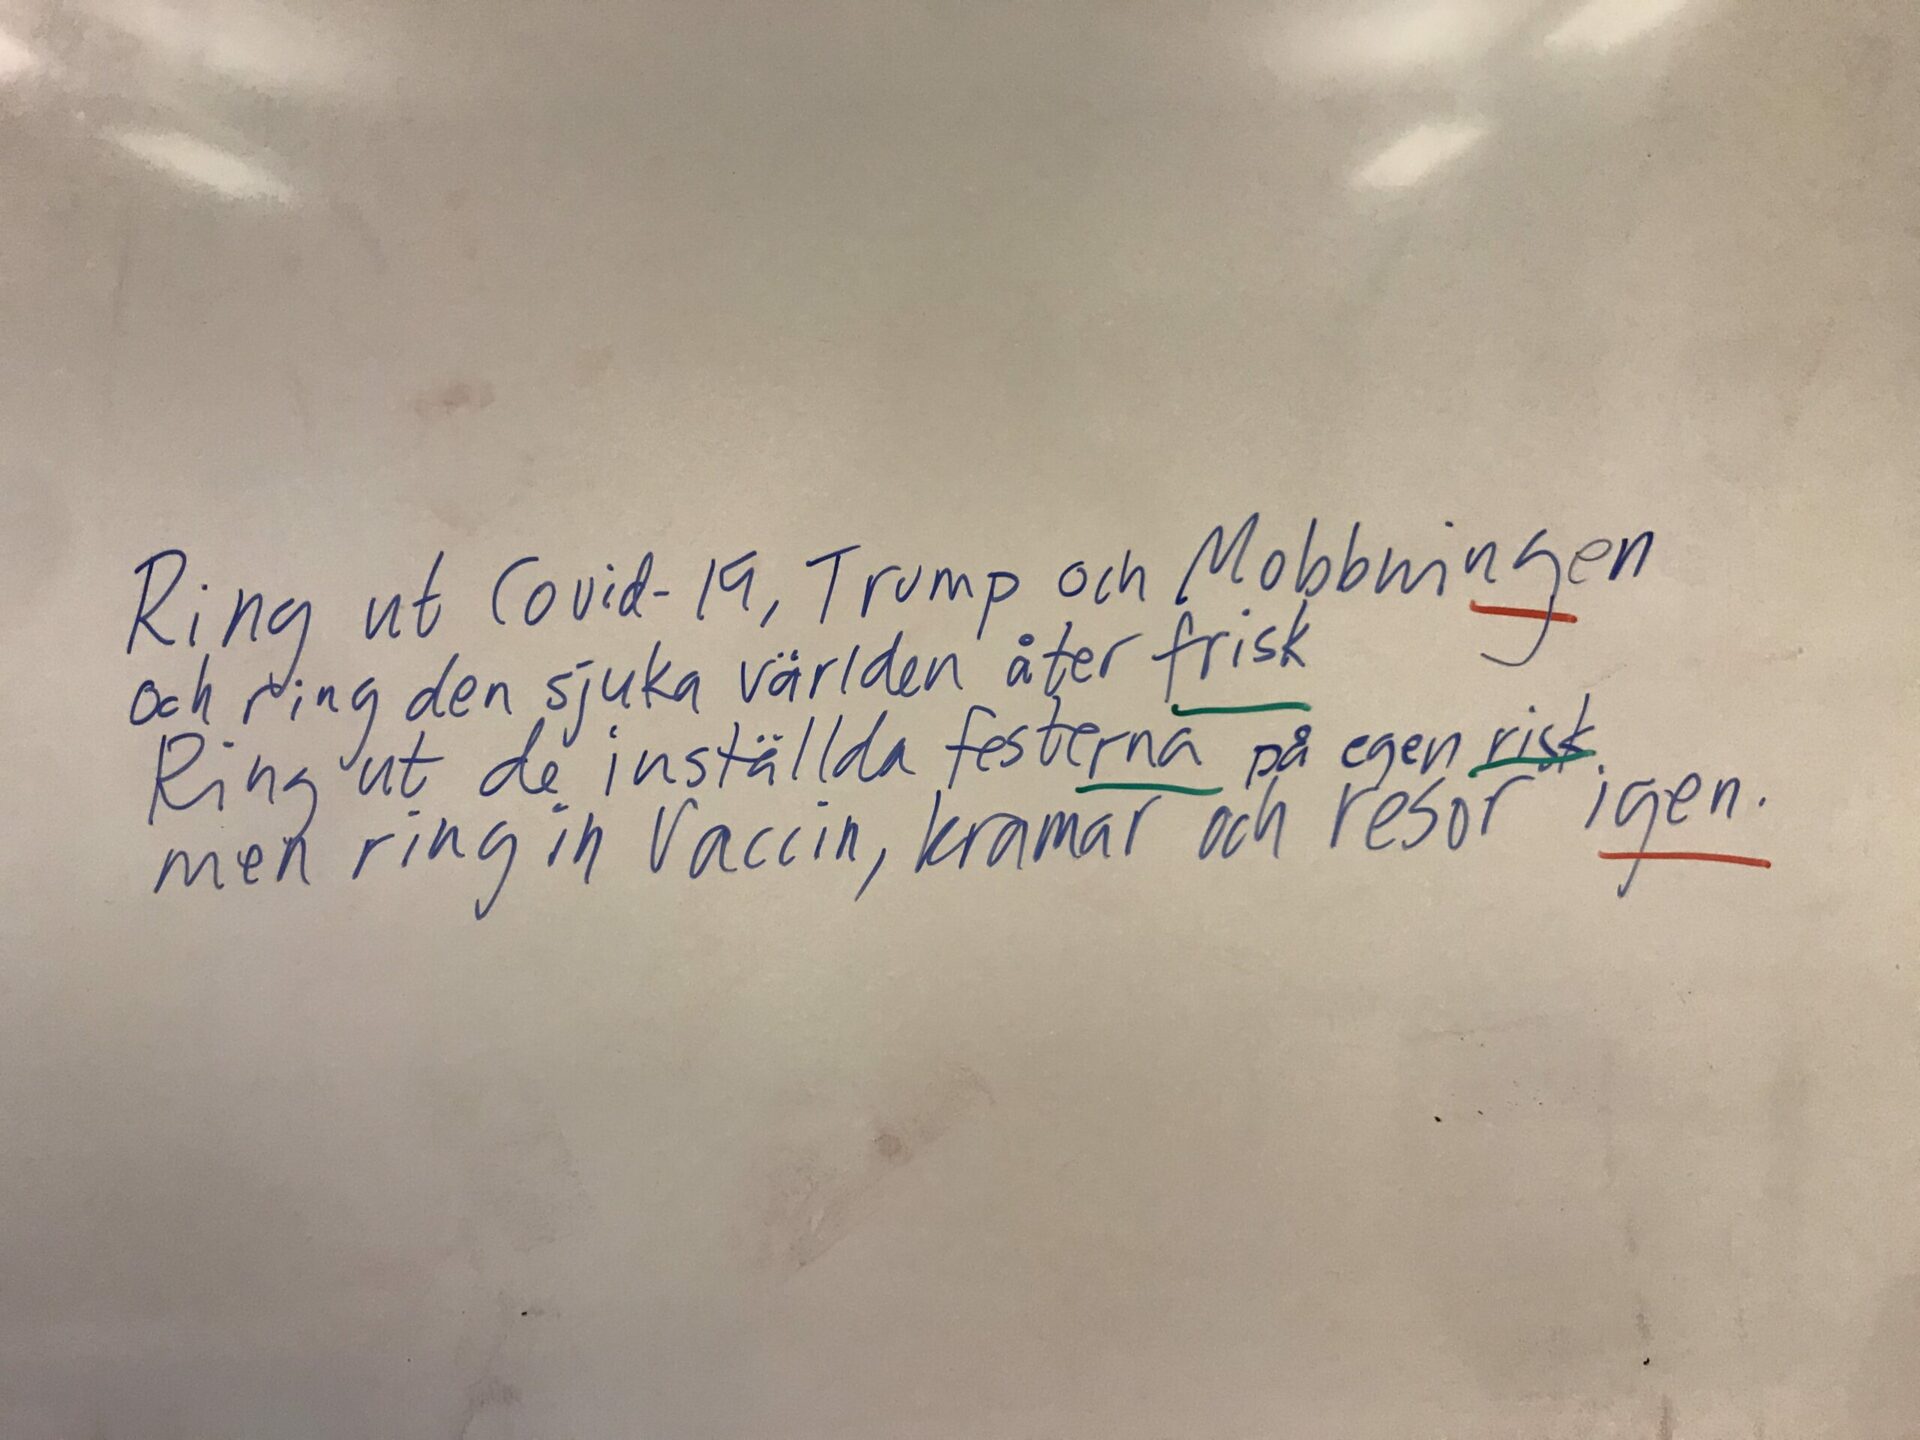 Ring ut Covid-19, Trump och Mobbningen
och ring den sjuka världen åter frisk
Ring ut de inställda festerna på egen risk.
men ring in Vaccin, kramar och resor igen.